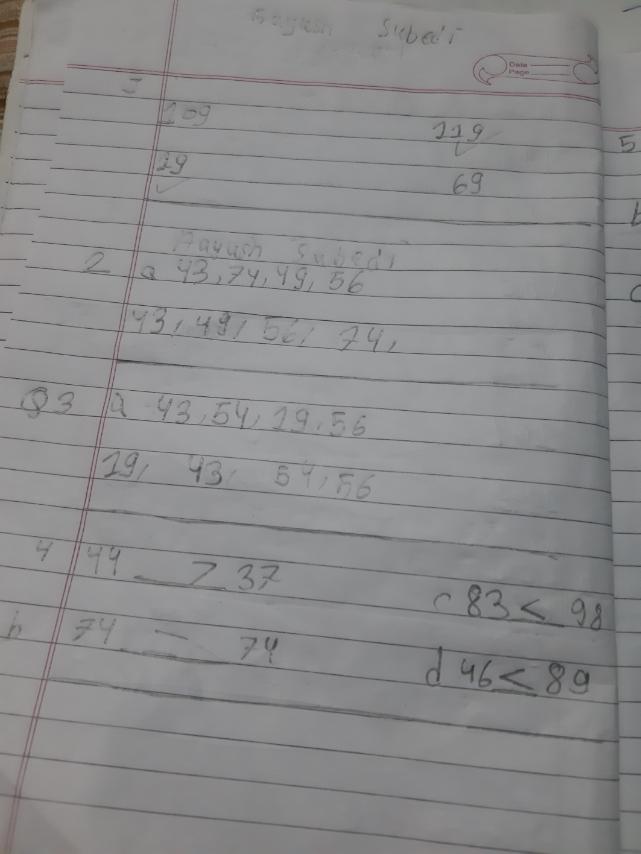 Aayush Subedi
Date
Page
1
109 119
19 69
Aayush Subedi
2 a 43, 74, 49, 56
43, 49, 56, 74,
Q3 a 43, 54, 19, 56
19, 43, 54, 56
4 44 > 37 c 83 < 98
b 74 = 74 d 46 < 89
5